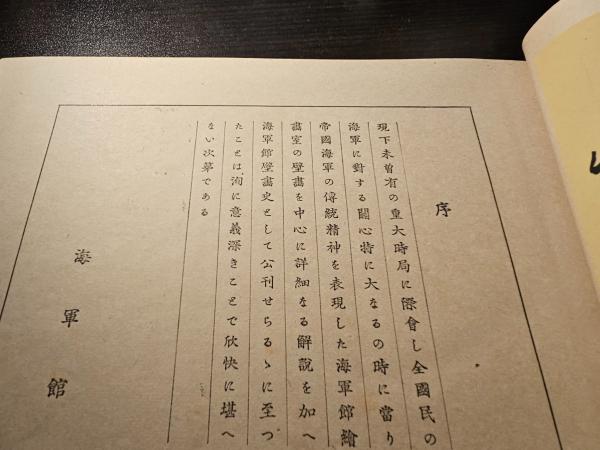 序
現下未曾有の重大時局に際會し全國民の
海軍に對する關心特に大なるの時に當り
帝國海軍の傳統精神を表現した海軍館繪
畫室の壁畫を中心に詳細なる解說を加へ
海軍館壁畫史として公刊せらるゝに至つ
たことは洵に意義深きことで欣快に堪へ
ない次第である
海軍館